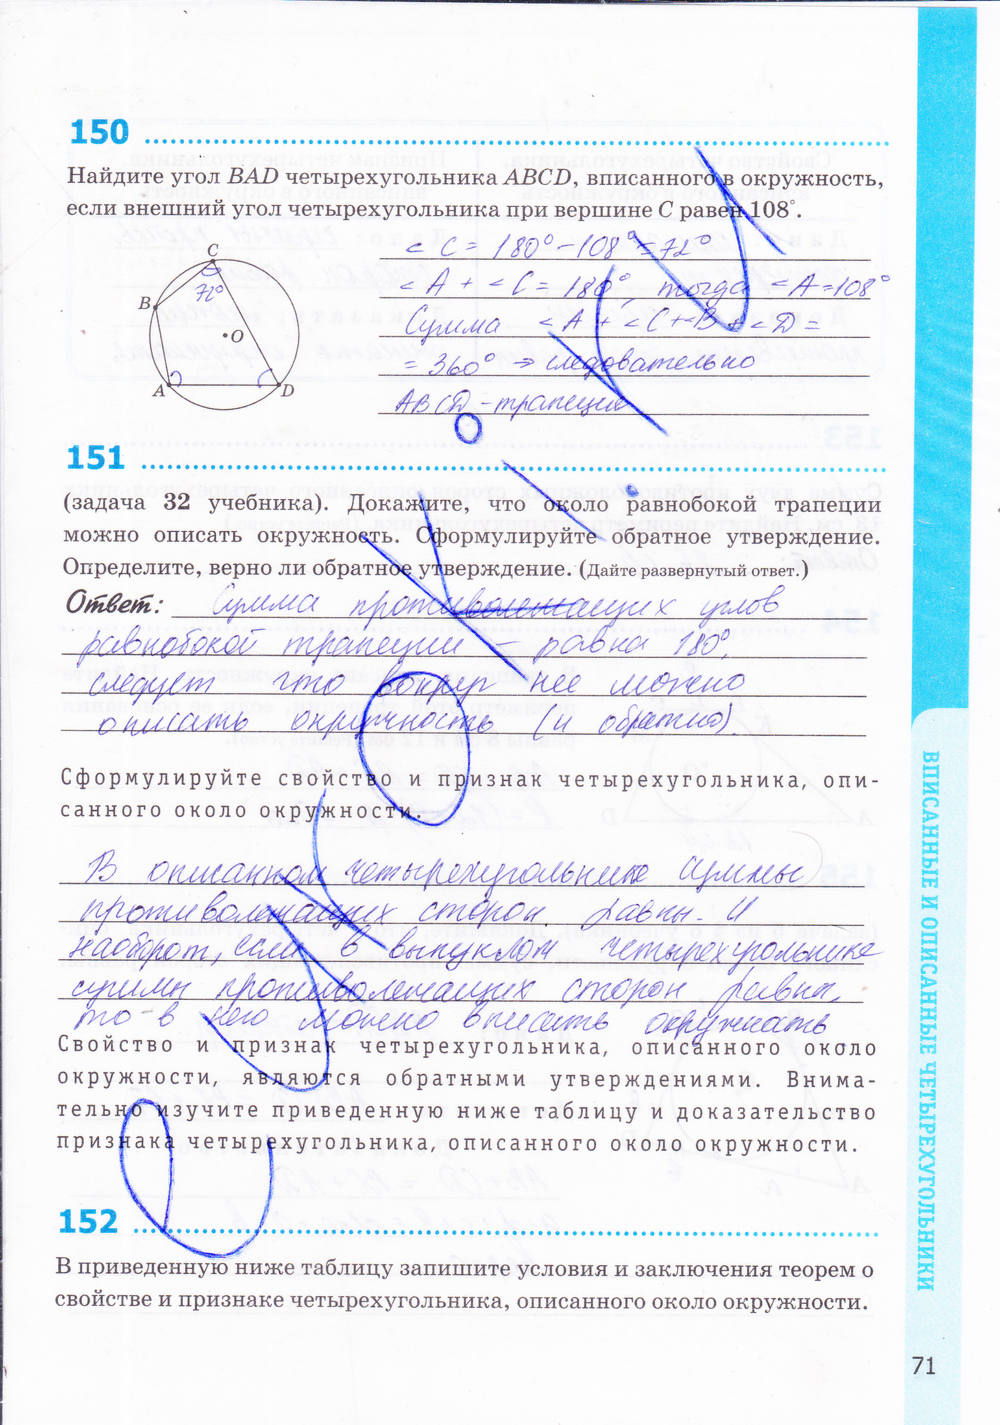 150
Найдите угол BAD четырехугольника ABCD, вписанного в окружность,
если внешний угол четырехугольника при вершине C равен 108°.
C
72°
B
O
A
D
<C = 180° - 108° = 72°
<A + <C = 180°, тогда <A = 108°
Сумма <A + <C + <B + <D =
= 360° ⇒ следовательно
ABCD - трапеция
151
(задача 32 учебника). Докажите, что около равнобокой трапеции
можно описать окружность. Сформулируйте обратное утверждение.
Определите, верно ли обратное утверждение. (Дайте развернутый ответ.)
Ответ: Сумма противолежащих углов
равнобокой трапеции – равна 180°,
следует что вокруг нее можно
описать окружность (и обратно).
Сформулируйте свойство и признак четырехугольника, опи-
санного около окружности.
В описанном четырехугольнике суммы
противолежащих сторон равны. И
наоборот, если в выпуклом четырехугольнике
суммы противолежащих сторон равны,
то в него можно вписать окружность
Свойство и признак четырехугольника, описанного около
окружности, являются обратными утверждениями. Внима-
тельно изучите приведенную ниже таблицу и доказательство
признака четырехугольника, описанного около окружности.
152
В приведенную ниже таблицу запишите условия и заключения теорем о
свойстве и признаке четырехугольника, описанного около окружности.
ВПИСАННЫЕ И ОПИСАННЫЕ ЧЕТЫРЕХУГОЛЬНИКИ
71